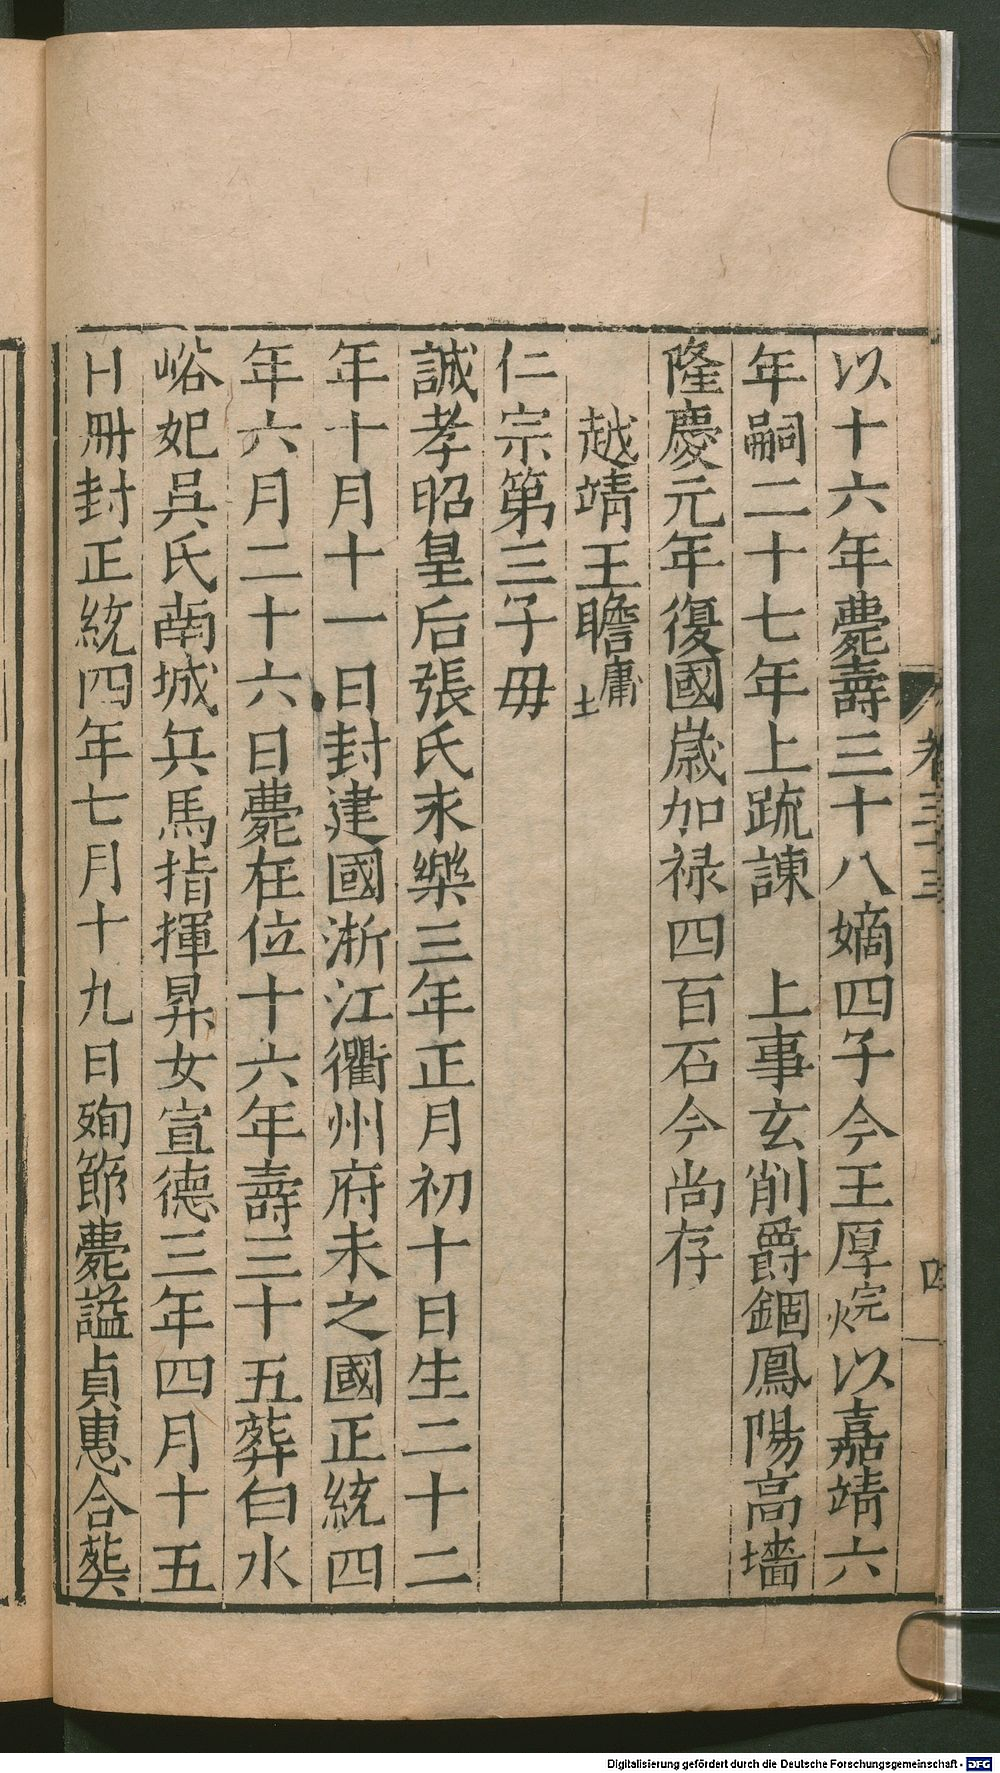 以十六年薨壽三十八嫡四子今王厚烷以嘉靖六
年嗣二十七年上疏諫　上事玄削爵錮鳳陽高墻
隆慶元年復國歲加禄四百石今尚存
越靖王瞻墉
仁宗第三子毋
誠孝昭皇后張氏永樂三年正月初十日生二十二
年十月十一日封建國淅江衢州府未之國正統四
年六月二十六日薨在位十六年壽三十五葬白水
峪妃吳氏南城兵馬指揮昇女宣德三年四月十五
日冊封正統四年七月十九日殉節薨謚貞惠合葬
卷三十三
四
Digitalisierung gefördert durch die Deutsche Forschungsgemeinschaft - DFG